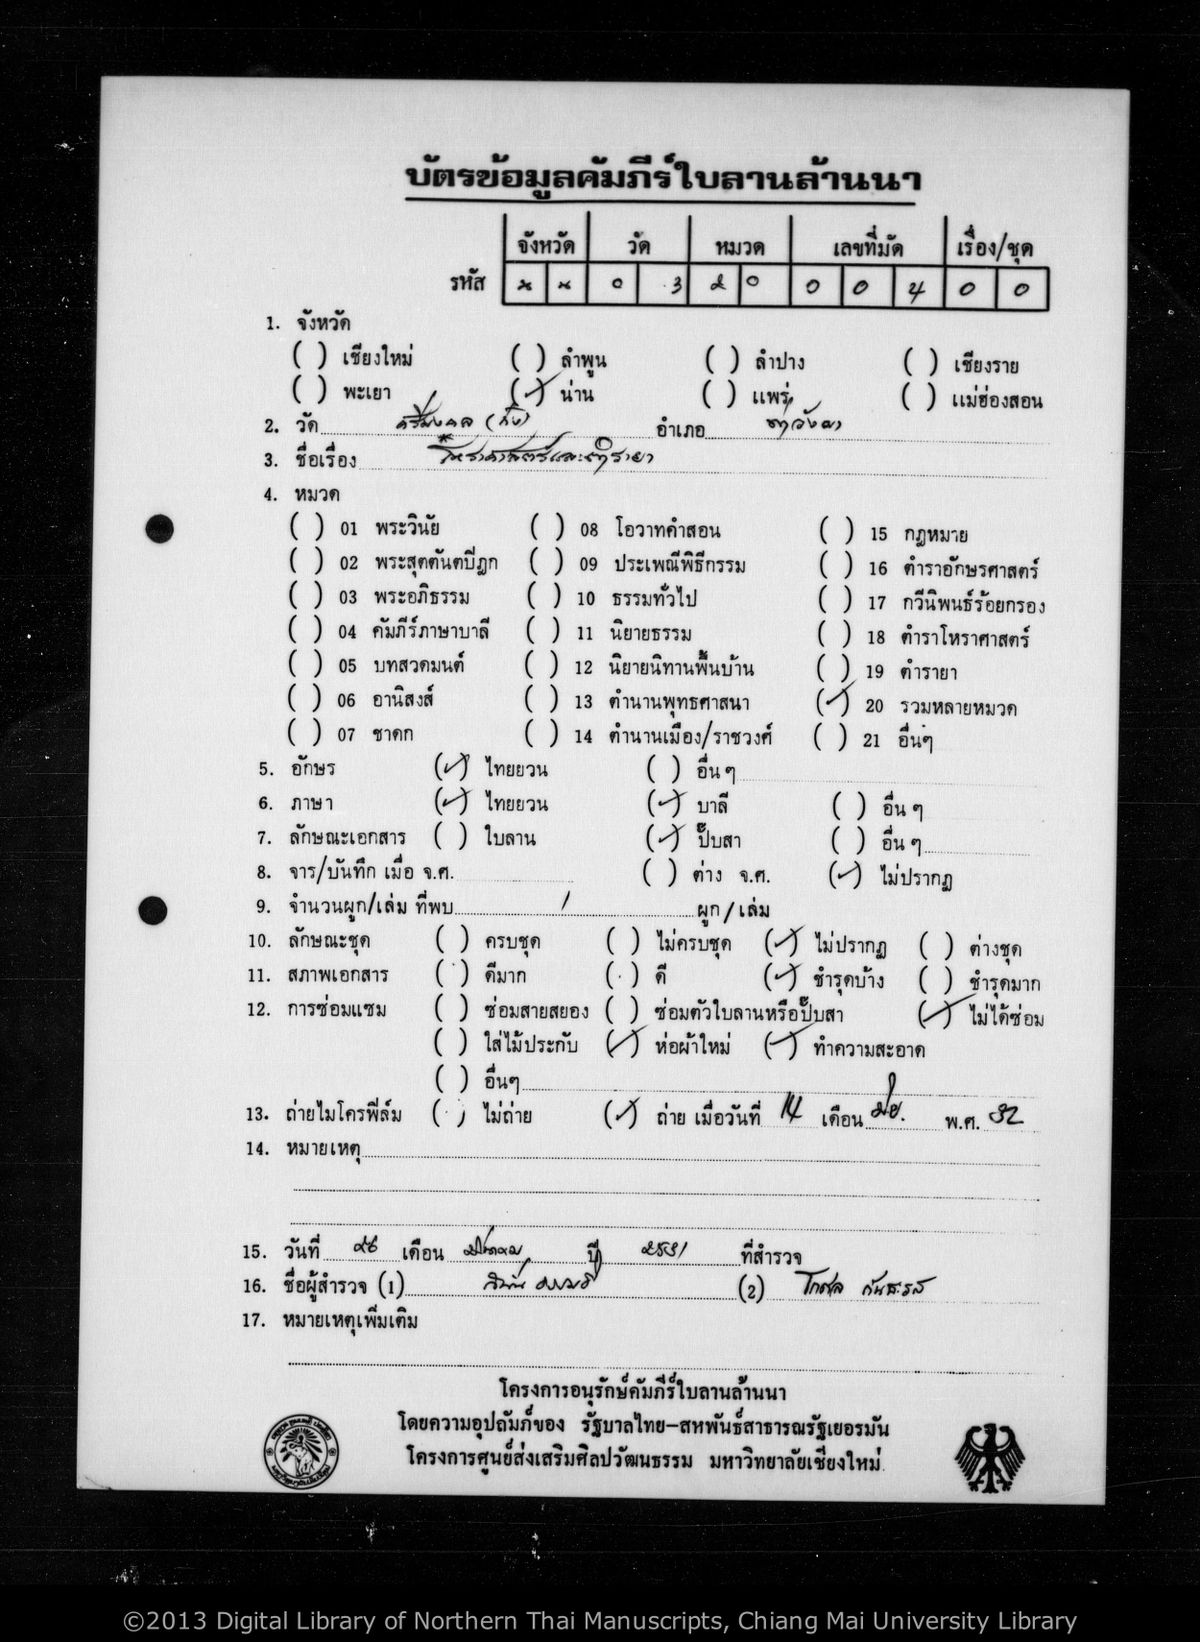 บัตรข้อมูลคัมภีร์ใบลานล้านนา
จังหวัด วัด หมวด เลขที่มัด เรื่อง/ชุด
รหัส น น 0 3 2 0 0 0 4 0 0
1. จังหวัด
( ) เชียงใหม่ ( ) ลำพูน ( ) ลำปาง ( ) เชียงราย
( ) พะเยา (✓) น่าน ( ) แพร่ ( ) แม่ฮ่องสอน
2. วัด ศรีมงคล (ก๋ง) อำเภอ ท่าวังผา
3. ชื่อเรื่อง โหราศาสตร์และตำรายา
4. หมวด
( ) 01 พระวินัย ( ) 08 โอวาทคำสอน ( ) 15 กฎหมาย
( ) 02 พระสุตตันตปิฎก ( ) 09 ประเพณีพิธีกรรม ( ) 16 ตำราอักษรศาสตร์
( ) 03 พระอภิธรรม ( ) 10 ธรรมทั่วไป ( ) 17 กวีนิพนธ์ร้อยกรอง
( ) 04 คัมภีร์ภาษาบาลี ( ) 11 นิยายธรรม ( ) 18 ตำราโหราศาสตร์
( ) 05 บทสวดมนต์ ( ) 12 นิยายนิทานพื้นบ้าน ( ) 19 ตำรายา
( ) 06 อานิสงส์ ( ) 13 ตำนานพุทธศาสนา (✓) 20 รวมหลายหมวด
( ) 07 ชาดก ( ) 14 ตำนานเมือง/ราชวงศ์ ( ) 21 อื่นๆ
5. อักษร (✓) ไทยยวน ( ) อื่น ๆ
6. ภาษา (✓) ไทยยวน (✓) บาลี ( ) อื่น ๆ
7. ลักษณะเอกสาร ( ) ใบลาน (✓) ปั๊บสา ( ) อื่น ๆ
8. จาร/บันทึก เมื่อ จ.ศ. ( ) ต่าง จ.ศ. (✓) ไม่ปรากฏ
9. จำนวนผูก/เล่ม ที่พบ 1 ผูก/เล่ม
10. ลักษณะชุด ( ) ครบชุด ( ) ไม่ครบชุด (✓) ไม่ปรากฏ ( ) ต่างชุด
11. สภาพเอกสาร ( ) ดีมาก ( ) ดี (✓) ชำรุดบ้าง ( ) ชำรุดมาก
12. การซ่อมแซม ( ) ซ่อมสายสยอง ( ) ซ่อมตัวใบลานหรือปั๊บสา (✓) ไม่ได้ซ่อม
( ) ใส่ไม้ประกับ (✓) ห่อผ้าใหม่ (✓) ทำความสะอาด
( ) อื่นๆ
13. ถ่ายไมโครฟิล์ม ( ) ไม่ถ่าย (✓) ถ่าย เมื่อวันที่ 14 เดือน พ.ศ. 32
14. หมายเหตุ
15. วันที่ ๑๖ เดือน ปี ๒๕๓๑ ที่สำรวจ
16. ชื่อผู้สำรวจ (1) (2)
17. หมายเหตุเพิ่มเติม
โครงการอนุรักษ์คัมภีร์ใบลานล้านนา
โดยความอุปถัมภ์ของ รัฐบาลไทย-สหพันธ์สาธารณรัฐเยอรมัน
โครงการศูนย์ส่งเสริมศิลปวัฒนธรรม มหาวิทยาลัยเชียงใหม่
©2013 Digital Library of Northern Thai Manuscripts, Chiang Mai University Library